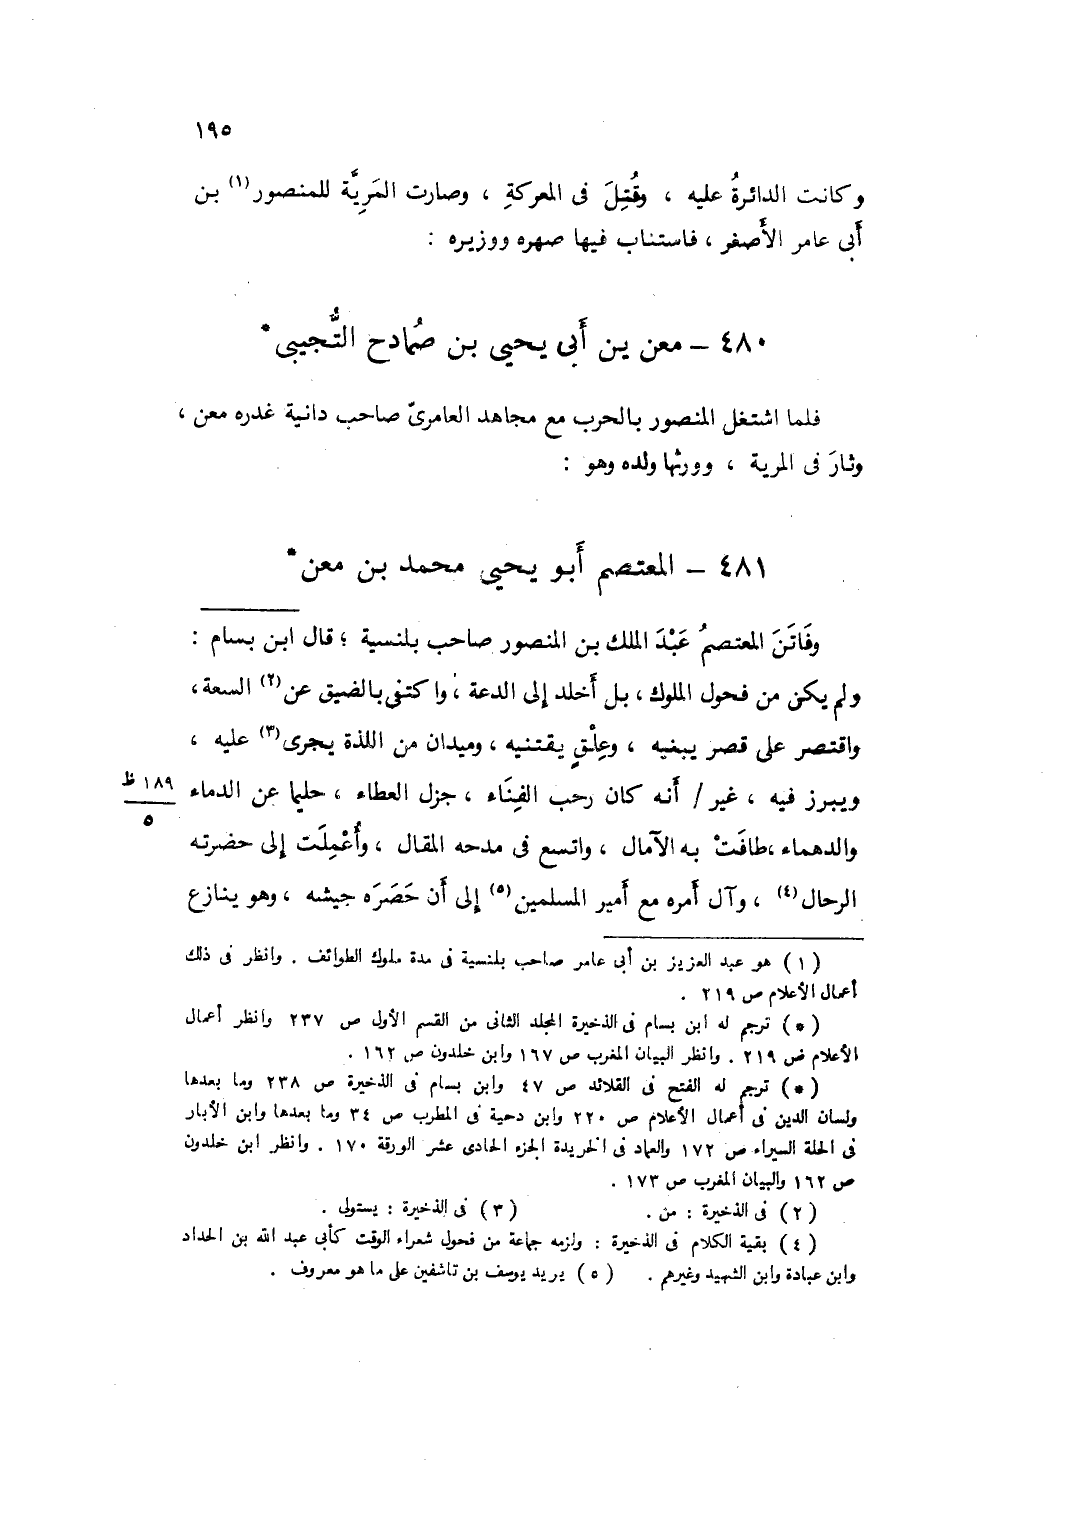 ١٩٥
وكانت الدائرةُ عليه ، وقُتِلَ فى المعركةِ ، وصارت المَرِيَّة للمنصور(١) بن
أَبى عامر الأَصغر ، فاستناب فيها صهره ووزيره :
٤٨٠ – معن بن أَبى يحيى بن صُمادح التُّجيبى*
فلما اشتغل المنصور بالحرب مع مجاهد العامرىّ صاحب دانية غدره معن ،
وثارَ فى المرية ، وورثها ولده وهو :
٤٨١ – المعتصم أَبو يحيى محمد بن معن*
وفَاتَنَ المعتصمُ عَبْدَ الملك بن المنصور صاحب بلنسية ؛ قال ابن بسام :
ولم يكن من فحول الملوك ، بل أَخلد إلى الدعة ، واكتفى بالضيق عن(٢) السعة ،
واقتصر على قصر يبنيه ، وعِلْقٍ يقتنيه ، وميدان من اللذة يجرى(٣) عليه ،
ويبرز فيه ، غير / أَنه كان رحب الفِنَاء ، جزل العطاء ، حليما عن الدماء
١٨٩ ظ
٥
والدهماء ، طافَتْ به الآمال ، واتسع فى مدحه المقال ، وأُعْمِلَت إلى حضرته
الرحال(٤) ، وآل أَمره مع أَمير المسلمين(٥) إلى أَن حَصَرَه جيشه ، وهو ينازع
(١) هو عبد العزيز بن أبى عامر صاحب بلنسية فى مدة ملوك الطوائف . وانظر فى ذلك
أعمال الأعلام ص ٢١٩ .
(*) ترجم له ابن بسام فى الذخيرة المجلد الثانى من القسم الأول ص ٢٣٧ وانظر أعمال
الأعلام ص ٢١٩ . وانظر البيان المغرب ص ١٦٧ وابن خلدون ص ١٦٢ .
(*) ترجم له الفتح فى القلائد ص ٤٧ وابن بسام فى الذخيرة ص ٢٣٨ وما بعدها
ولسان الدين فى أعمال الأعلام ص ٢٢٠ وابن دحية فى المطرب ص ٣٤ وما بعدها وابن الأبار
فى الحلة السيراء ص ١٧٢ والعماد فى الخريدة الجزء الحادى عشر الورقة ١٧٠ . وانظر ابن خلدون
ص ١٦٢ والبيان المغرب ص ١٧٣ .
(٢) فى الذخيرة : من . (٣) فى الذخيرة : يستولى .
(٤) بقية الكلام فى الذخيرة : ولزمه جماعة من فحول شعراء الوقت كأبى عبد الله بن الحداد
وابن عبادة وابن الشهيد وغيرهم . (٥) يريد يوسف بن تاشفين على ما هو معروف .